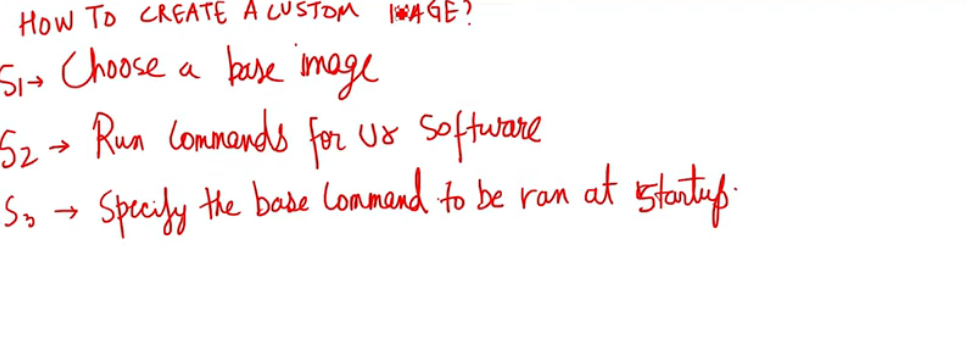 HOW TO CREATE A CUSTOM IMAGE?
S1→ Choose a base image
S2 → Run Commands for ur Software
S3 → Specify the base Command to be ran at Startup.